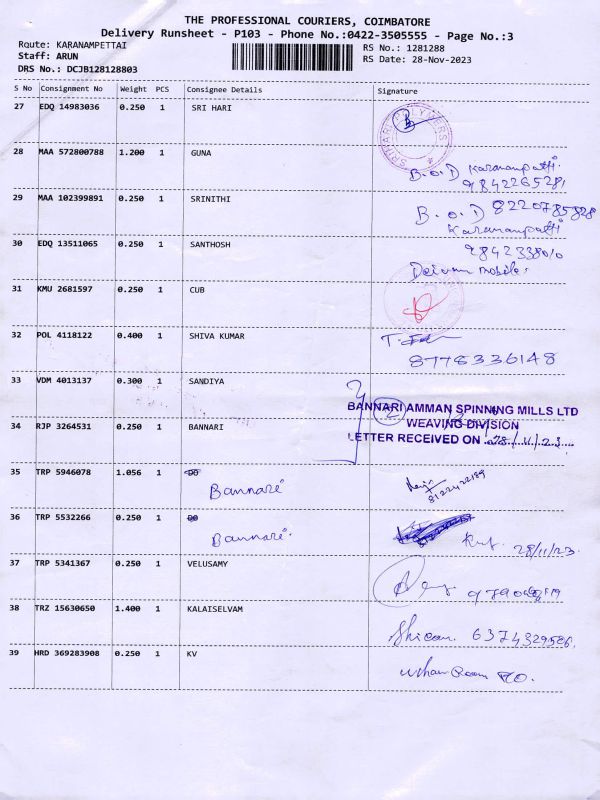 THE PROFESSIONAL COURIERS, COIMBATORE
Delivery Runsheet - P103 - Phone No.:0422-3505555 - Page No.:3
Route: KARANAMPETTAI RS No.: 1281288
Staff: ARUN RS Date: 28-Nov-2023
DRS No.: DCJB128128803
S No Consignment No Weight PCS Consignee Details Signature
27 EDQ 14983036 0.250 1 SRI HARI
28 MAA 572800788 1.200 1 GUNA B.O.D Karanampatti.
9842265281
29 MAA 102399891 0.250 1 SRINITHI B.O.D 8220785828
Karanampatti
30 EDQ 13511065 0.250 1 SANTHOSH
mobile.
31 KMU 2681597 0.250 1 CUB
32 POL 4118122 0.400 1 SHIVA KUMAR
8778336148
33 VDM 4013137 0.300 1 SANDIYA
BANNARI AMMAN SPINNING MILLS LTD
WEAVING DIVISION
34 RJP 3264531 0.250 1 BANNARI LETTER RECEIVED ON 28/11/23
35 TRP 5946078 1.056 1 DO
Bannari 8122422189
36 TRP 5532266 0.250 1 DO
Bannari. 28/11/23.
37 TRP 5341367 0.250 1 VELUSAMY
38 TRZ 15630650 1.400 1 KALAISELVAM
6374329526
39 HRD 369283908 0.250 1 KV